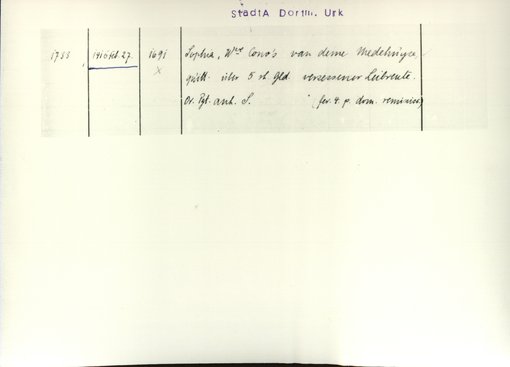 StadtA Dortm. Urk
1733 1410 feb. 27. 1691 Sophia, Wwe Cono's van deme Medehuys,
x quitt. über 5 rh. Gld. versessener Leibrente.
Or. Pgt. anh. S. (fer. 4. p. dom. reminisc.)